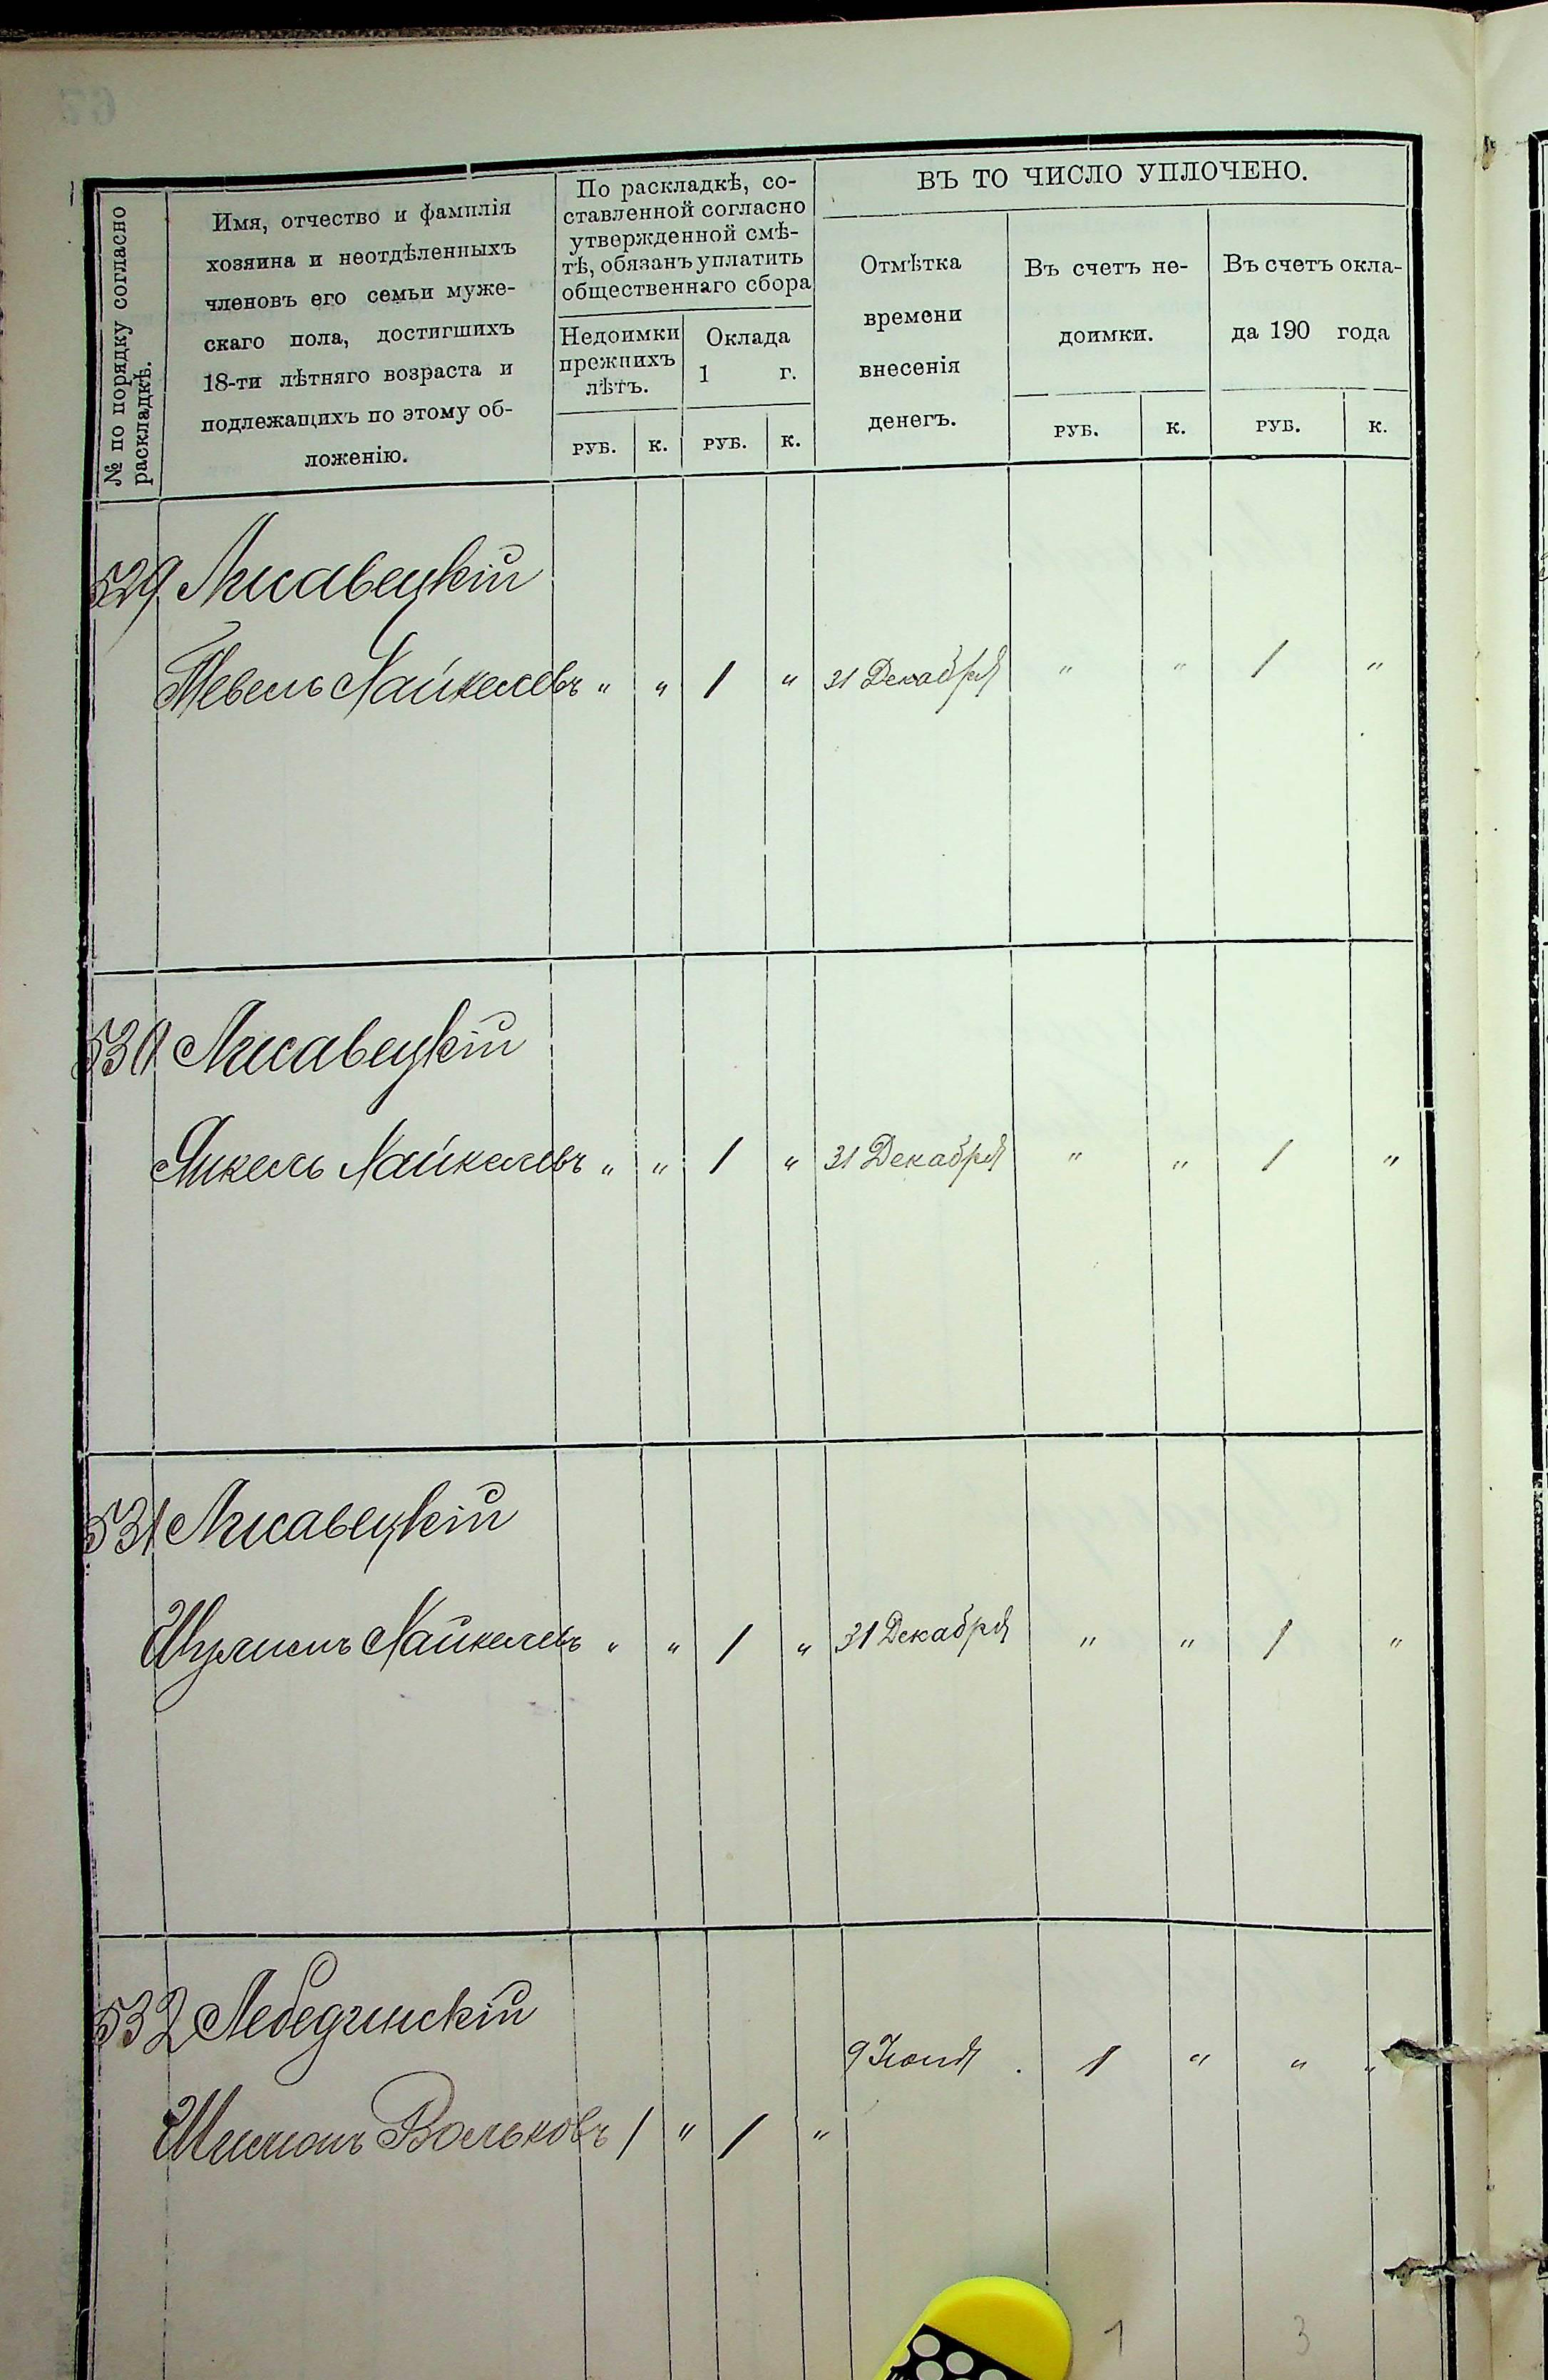 № по порядку согласно раскладкѣ.
Имя, отчество и фамилія
хозяина и неотдѣленныхъ
членовъ его семьи муже-
скаго пола, достигшихъ
18-ти лѣтняго возраста и
подлежащихъ по этому об-
ложенію.
По раскладкѣ, со-
ставленной согласно
утвержденной смѣ-
тѣ, обязанъ уплатить
общественнаго сбора
Недоимки
прежнихъ
лѣтъ.
Оклада
1 г.
РУБ. К. РУБ. К.
ВЪ ТО ЧИСЛО УПЛОЧЕНО.
Отмѣтка
времени
внесенія
денегъ.
Въ счетъ не-
доимки.
Въ счетъ окла-
да 190 года
РУБ. К. РУБ. К.
529 Лисавецкій
Тевель Хайкелевъ " " 1 " 31 Декабря " " 1 "
530 Лисавецкій
Янкель Хайкелевъ " " 1 " 31 Декабря " " 1 "
531 Лисавецкій
Шулимъ Хайкелевъ " " 1 " 31 Декабря " " 1 "
532 Лебединскій
9 Іюня 1 " " "
Шимонъ Вольковъ 1 " 1 "
1 3